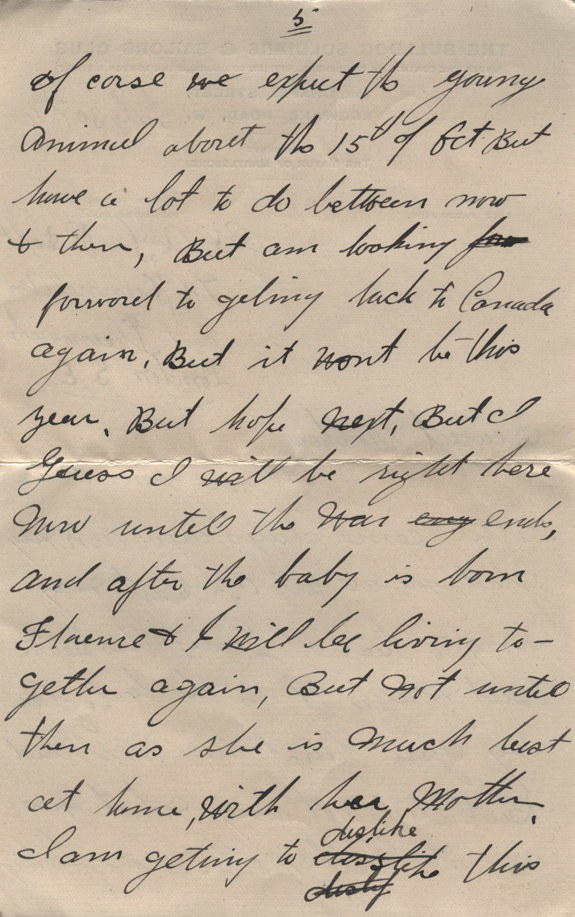 5
of corse we expect th young
Animal about th 15th of Oct But
have a lot to do between now
& then, But am looking for
forward to geting back to Canada
again, But it wont be this
year, But hope next, But I
Guess I will be right here
Now until the War eny ends,
and after the baby is born
Florence & I will be living to-
gether again, But Not until
then as she is Much best
at home, with her Mother,
dislike
I am geting to this